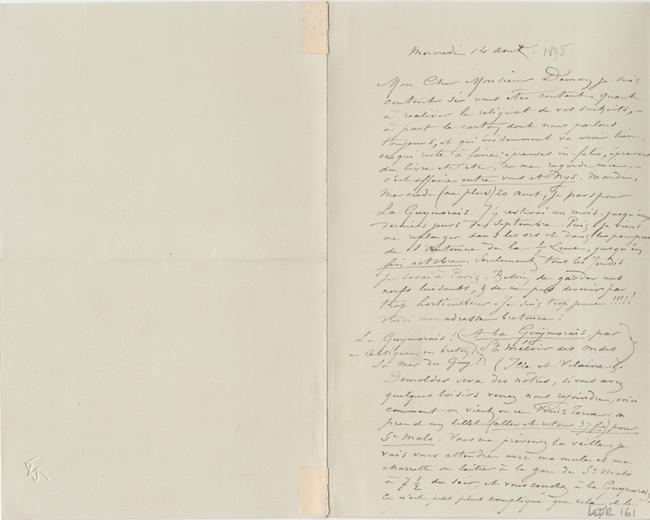 Mercredi 14 aout. 1895
Mon Cher Monsieur Deman, je suis
content si vous êtes content quant
à réaliser le reliquat de vos souhaits, –
à part le carton dont nous parlons
toujours, et qui évidemment va avoir lieu.
ce que reste à faire: épreuves in-folio, épreuves
du livre etc etc, ne me regarde mie, –
c'est affaire entre vous et Nys. Mardi,
Mercredi (au plus) 20 aout, je pars pour
La Guymorais. J'y resterai un mois. jusqu'aux
derniers jours de septembre. Puis je viens
me replonger dans les ors et dans les pourpres
de l'Automne de la ½ Lune, jusqu'en
fin octobre. Seulement tous les jeudis
je serai à Paris. Besoin de garder mes
nerfs luisants, & de ne pas devenir par
trop horticulteur. Je suis trop jeune !!!!!
Voici mon adresse bretonne:
La Guymorais! (A la Guymorais, par
en celtique, en breton: St Méloir des Ondes
La mer du Guy! (Ille et Vilaine).
Demolder sera des nôtres, si vous avez
quelques loisirs venez nous rejoindre, voici
comment on vient en ce Finis Terra: on
prend un billet (aller et retour 37 fr) pour
St Malo. Vous me prévenez la veille, je
vais vous attendre avec ma mule et ma
charrette de laitier à la gare de St Malo
à 7 ½ du soir, et vous couchez à la Guymorais
ce n'est pas plus compliqué que cela. A la
LEpr 161